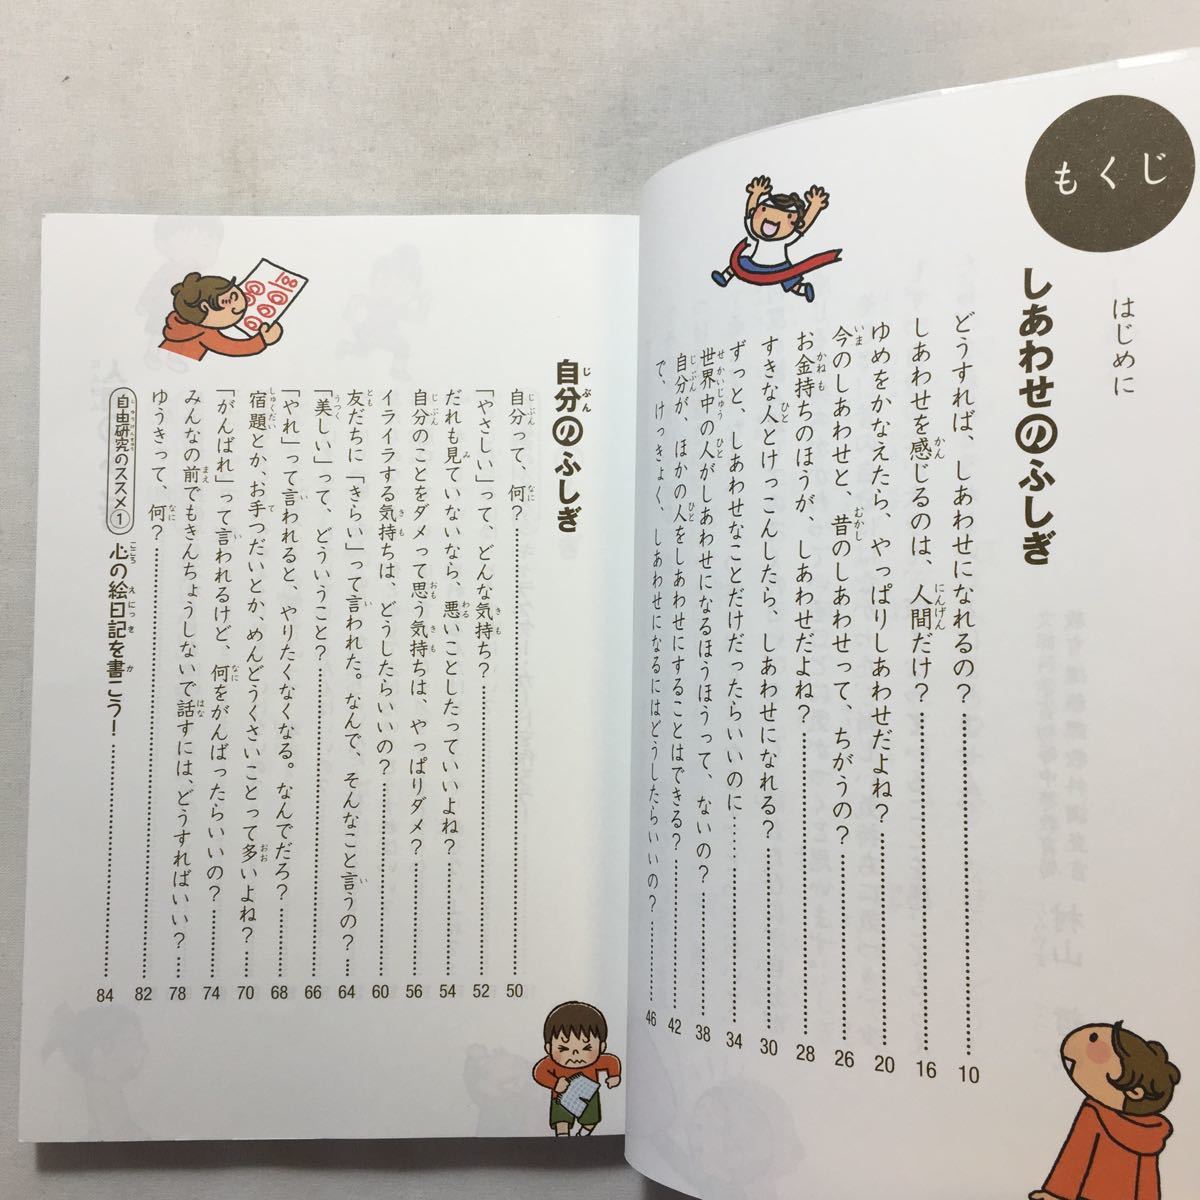 もくじ
はじめに
しあわせのふしぎ
どうすれば、しあわせになれるの？ 10
しあわせを感じるのは、人間だけ？ 16
ゆめをかなえたら、やっぱりしあわせだよね？ 20
今のしあわせと、昔のしあわせって、ちがうの？ 26
お金持ちのほうが、しあわせだよね？ 28
すきな人とけっこんしたら、しあわせになれる？ 30
ずっと、しあわせなことだけだったらいいのに 34
世界中の人がしあわせになるほうほうって、ないの？ 38
自分が、ほかの人をしあわせにすることはできる？ 42
で、けっきょく、しあわせになるにはどうしたらいいの？ 46
自分のふしぎ
自分って、何？ 50
「やさしい」って、どんな気持ち？ 52
だれも見ていないなら、悪いことしたっていいよね？ 54
自分のことをダメって思う気持ちは、やっぱりダメ？ 56
イライラする気持ちは、どうしたらいいの？ 60
友だちに「きらい」って言われた。なんで、そんなこと言うの？ 64
「美しい」って、どういうこと？ 66
「やれ」って言われると、やりたくなくなる。なんでだろ？ 68
宿題とか、お手つだいとか、めんどうくさいことって多いよね？ 70
「がんばれ」って言われるけど、何をがんばったらいいの？ 74
みんなの前でもきんちょうしないで話すには、どうすればいい？ 78
ゆうきって、何？ 82
自由研究のススメ① 心の絵日記を書こう！ 84
100